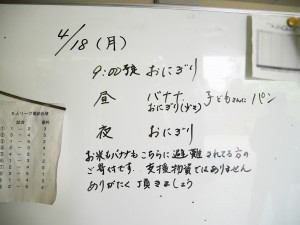 4/18（月）
9:00頃 おにぎり
昼 バナナ 子どもさんに パン
おにぎり(少々)
夜 おにぎり
お米もバナナもこちらに避難されてる方の
ご寄付です. 支援物資ではありません
ありがたく頂きましょう